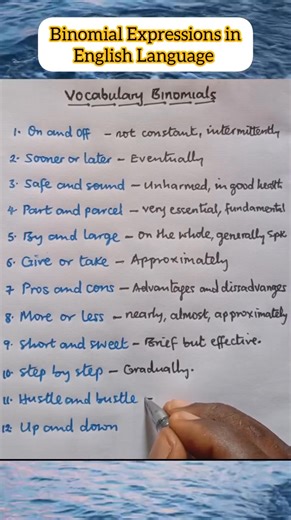 Binomial Expressions in
English Language
Vocabulary Binomials
1. On and off – not constant, intermittently
2. Sooner or later – Eventually
3. Safe and sound – Unharmed, in good health
4. Part and parcel – very essential, fundamental
5. By and large – on the whole, generally spk
6. Give or take – Approximately
7. Pros and cons – Advantages and dissadvanges
8. More or less – nearly, almost, approximately
9. Short and sweet – Brief but effective.
10. Step by step – Gradually.
11. Hustle and bustle –
12. Up and down